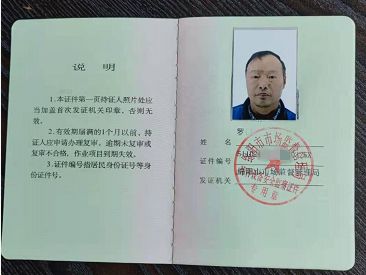 说 明
1.本证件第一页持证人照片处应
当加盖首次发证机关印章，否则无
效。
2.有效期届满的1个月以前，持
证人应申请办理复审。逾期未复审或
复审不合格，作业项目到期失效。
3.证件编号指居民身份证号等身
份证件号。
姓 名 罗
证件编号
发证机关 绵阳市市场监督管理局
专用章